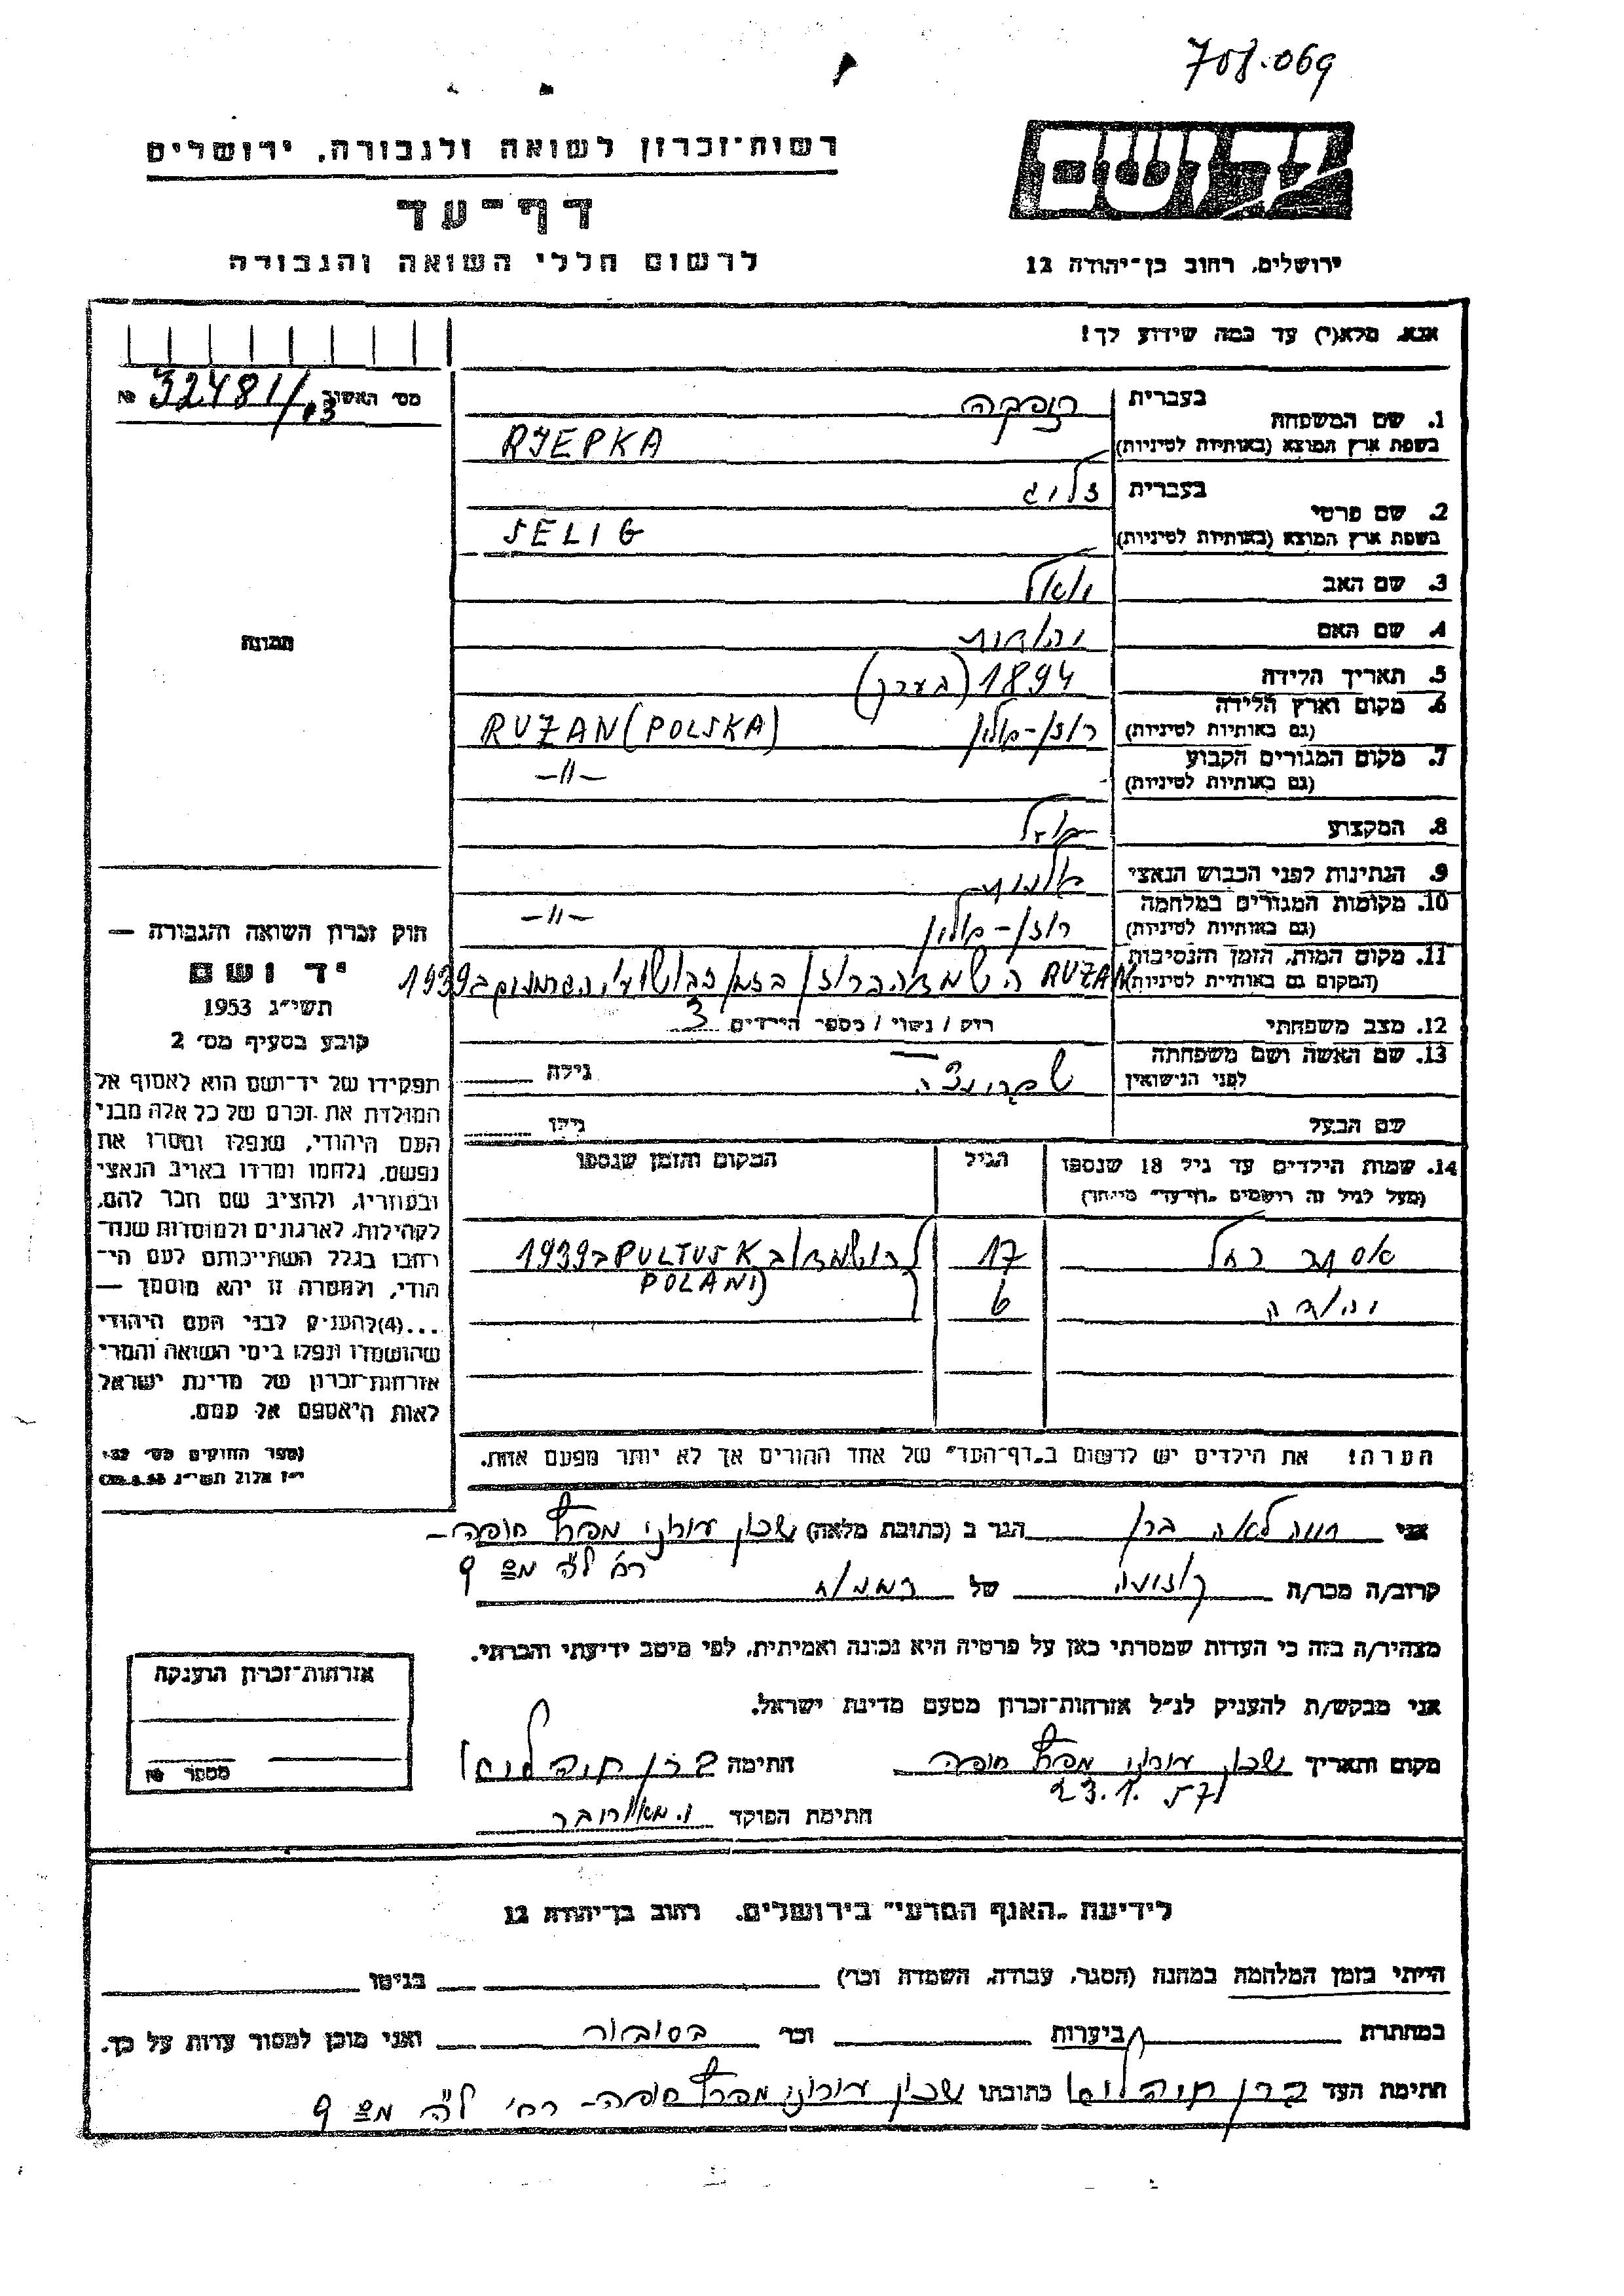 708.069
רשות־זכרון לשואה ולגבורה, ירושלים
דף־עד
לרשום חללי השואה והגבורה
ירושלים, רחוב בן־יהודה 12
אנא, מלא(י) עד כמה שידוע לך!
מס׳ האשור 32481/.03 №
1. שם המשפחה
בעברית
בשפת ארץ המוצא (באותיות לטיניות) RJEPKA
2. שם פרטי
בעברית זליג
בשפת ארץ המוצא (באותיות לטיניות) SELIG
3. שם האב
4. שם האם
5. תאריך הלידה 1894 (בערך)
6. מקום וארץ הלידה
(גם באותיות לטיניות) רוזן־פולין RUZAN (POLSKA)
7. מקום המגורים הקבוע
(גם באותיות לטיניות) —״—
8. המקצוע
9. הנתינות לפני הכבוש הנאצי פולנית
10. מקומות המגורים במלחמה
(גם באותיות לטיניות) רוזן־פולין —״—
11. מקום המות, הזמן והנסיבות
(המקום גם באותיות לטיניות) RUZAN ברוזן בזמן הגרמנים ב1939
12. מצב משפחתי רווק / נשוי / מספר הילדים 3
13. שם האשה ושם משפחתה
לפני הנישואין גילה
שם הבעל גילו
תמונה
14. שמות הילדים עד גיל 18 שנספו
(מעל לגיל זה רושמים ״דף־עד״ מיוחד)
הגיל
המקום והזמן שנספו
אסתר רחל 17 PULTUSK ב1939
POLAND
יהודה 6
הערה! את הילדים יש לרשום ב״דף־העד״ של אחד ההורים אך לא יותר מפעם אחת.
חוק זכרון השואה והגבורה —
יד ושם
תשי״ג 1953
קובע בסעיף מס׳ 2
תפקידו של יד־ושם הוא לאסוף אל
המולדת את זכרם של כל אלה מבני
העם היהודי, שנפלו ומסרו את
נפשם, נלחמו ומרדו באויב הנאצי
ובעוזריו, ולהציב שם וזכר להם,
לקהילות, לארגונים ולמוסדות שנח־
רבו בגלל השתייכותם לעם הי־
הודי, ולמטרה זו יהא מוסמך —
...(4)להעניק לבני העם היהודי
שהושמדו ונפלו בימי השואה והמרי
אזרחות־זכרון של מדינת ישראל
לאות היאספם אל עמם.
(ספר החוקים מס׳ 132
י״ז אלול תשי״ג 28.8.53)
אני חיה לאה ברן הגר ב (כתובת מלאה) שכון עירוני מפרץ חיפה־
רח׳ ל״ה מס 9
קרוב/ה מכר/ה של
מצהיר/ה בזה כי העדות שמסרתי כאן על פרטיה היא נכונה ואמיתית, לפי מיטב ידיעתי והכרתי.
אני מבקש/ת להעניק לנ״ל אזרחות־זכרון מטעם מדינת ישראל.
מקום ותאריך שכון עירוני מפרץ חיפה חתימה
23.1.57
חתימת הפוקד
אזרחות־זכרון הוענקה
מספר №
לידיעת ״האגף המדעי״ בירושלים, רחוב בן־יהודה 12
הייתי בזמן המלחמה במחנה (הסגר, עבודה, השמדה וכו׳) בגיטו
במחתרת ביערות וכו׳ ואני מוכן למסור עדות על כך.
חתימת העד כתובתו שכון עירוני מפרץ חיפה־ רח׳ ל״ה מס 9